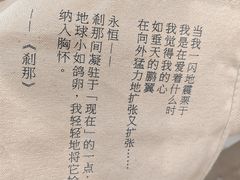 当我一闪地震栗于
我是在爱着什么时
我觉得我的心
如垂天的鹏翼
在向外猛力地扩张又扩张……
永恒——
刹那间凝驻于「现在」的一点
地球小如鸽卵,我轻轻地将它拾
纳入胸怀。
——《刹那》